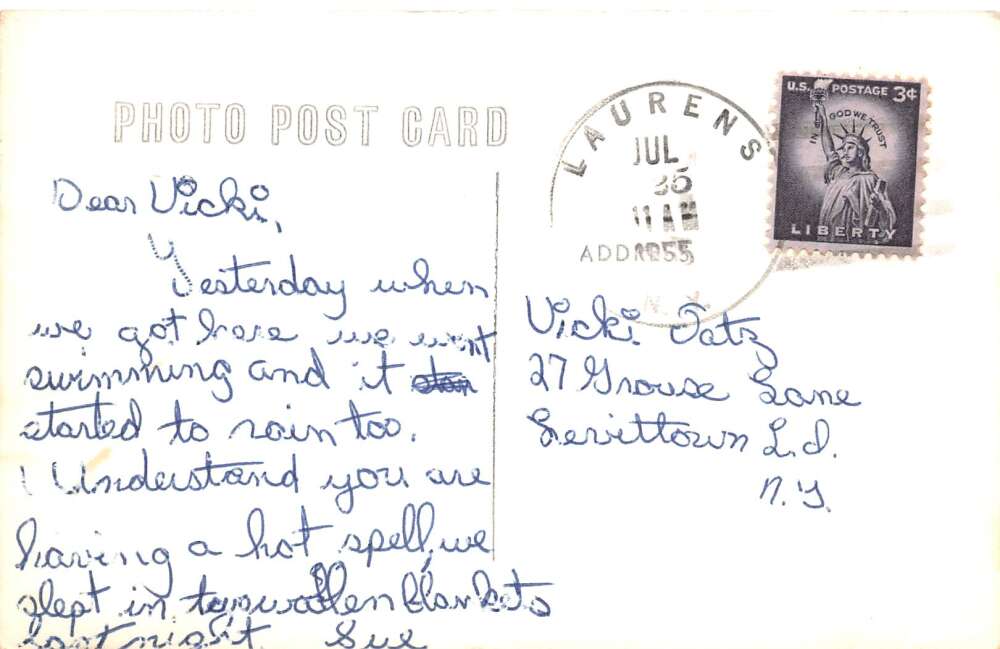 PHOTO POST CARD
LAURENS
JUL
11 AM
1955
N.Y.
U.S. POSTAGE 3¢
IN GOD WE TRUST
LIBERTY
Dear Vicki,
Yesterday when
we got here we went
swimming and it
started to rain too.
I Understand you are
having a hot spell, we
slept in two wollen blankets
last night. Sue
Vicki Tatz
27 Grouse Lane
Levittown L.I.
N.Y.